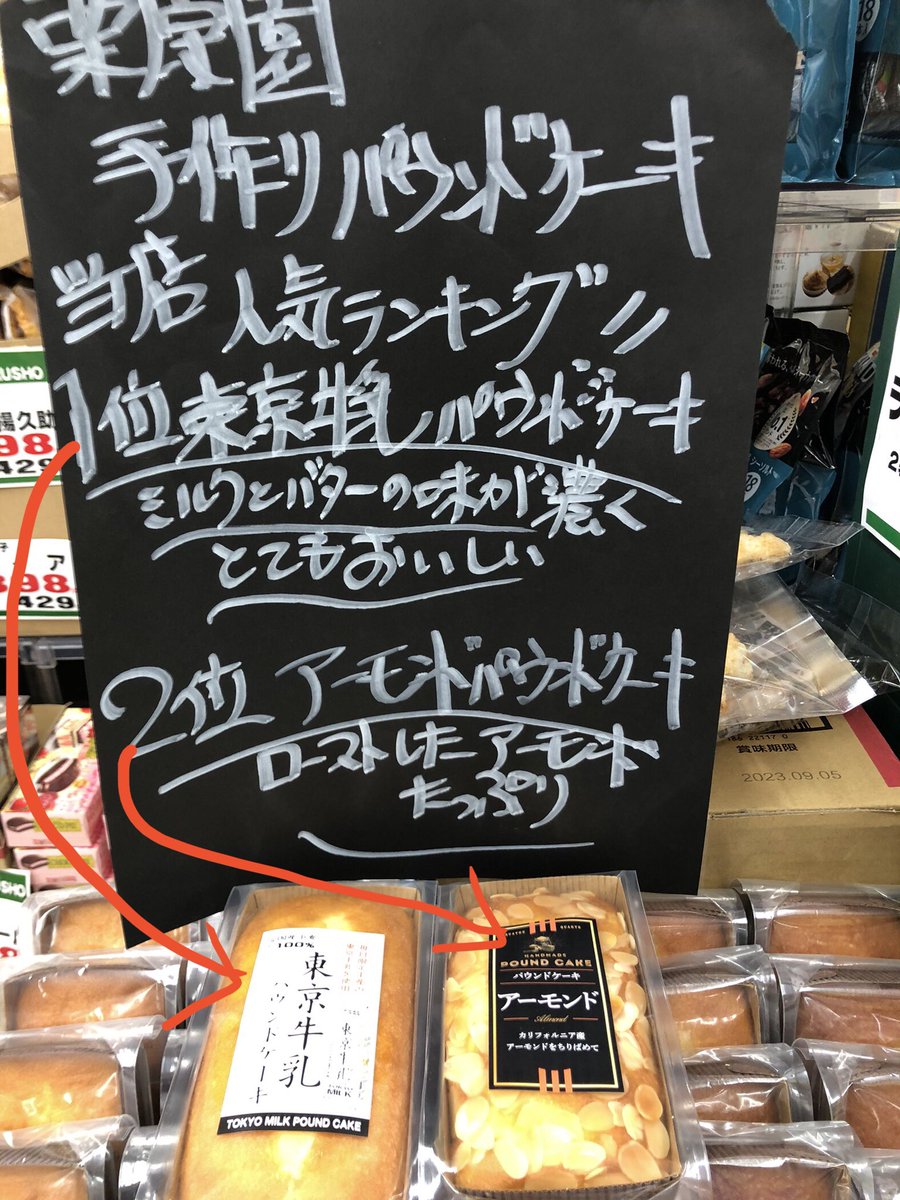 栗原園
手作りパウンドケーキ
当店
人気ランキング!!
1位東京牛乳パウンドケーキ
ミルクとバターの味が濃く
とてもおいしい
2位 アーモンドパウンドケーキ
ローストしたアーモンド
たっぷり
100%
東京牛乳
パウンドケーキ
東京牛乳
TOKYO MILK POUND CAKE
HANDMADE
POUND CAKE
パウンドケーキ
アーモンド
Almond
カリフォルニア産
アーモンドをちりばめて
賞味期限
2023.09.05
USHO
湯久助
98
429
ア
398
429